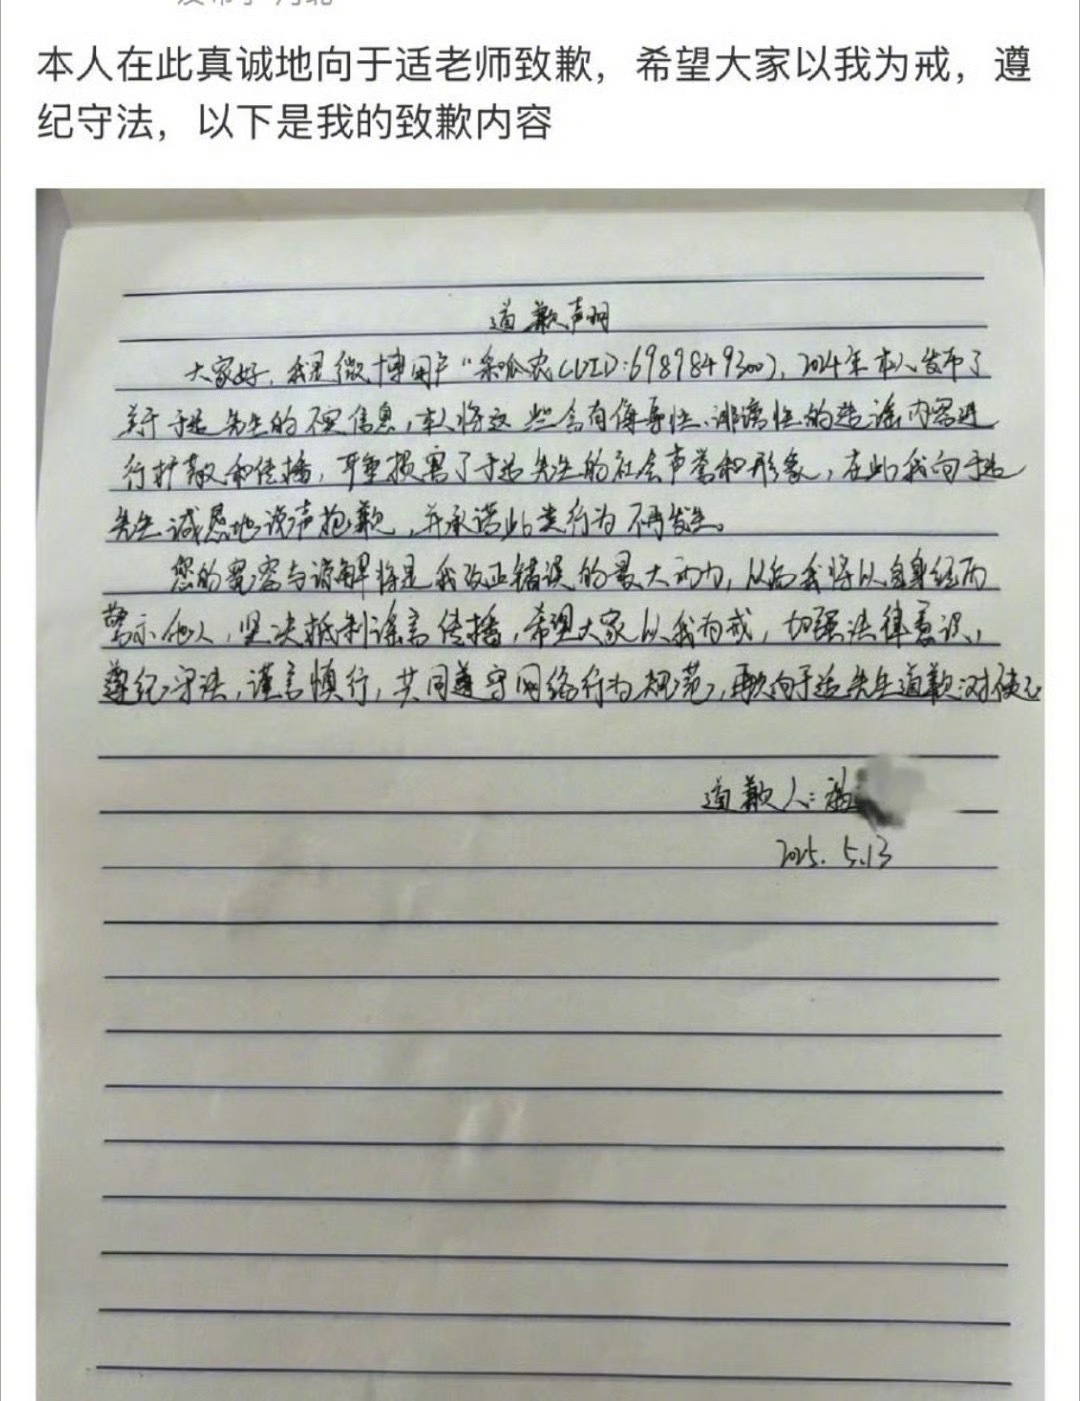 本人在此真诚地向于适老师致歉，希望大家以我为戒，遵
纪守法，以下是我的致歉内容
道歉声明
大家好，我是微博用户“ (UID:6989849300)，2024年本人发布了
关于于适先生的不实信息，本人将这些含有侮辱性、诽谤性的造谣内容进
行扩散和传播，严重损害了于适先生的社会声誉和形象，在此我向于适
先生诚恳地说声抱歉，并承诺此类行为不再发生。
您的宽容与谅解将是我改正错误的最大动力，以后我将以自身经历
警示他人，坚决抵制谣言传播，希望大家以我为戒，加强法律意识，
遵纪守法，谨言慎行，共同遵守网络行为规范，再次向于适先生道歉，对
道歉人：
2025. 5.13